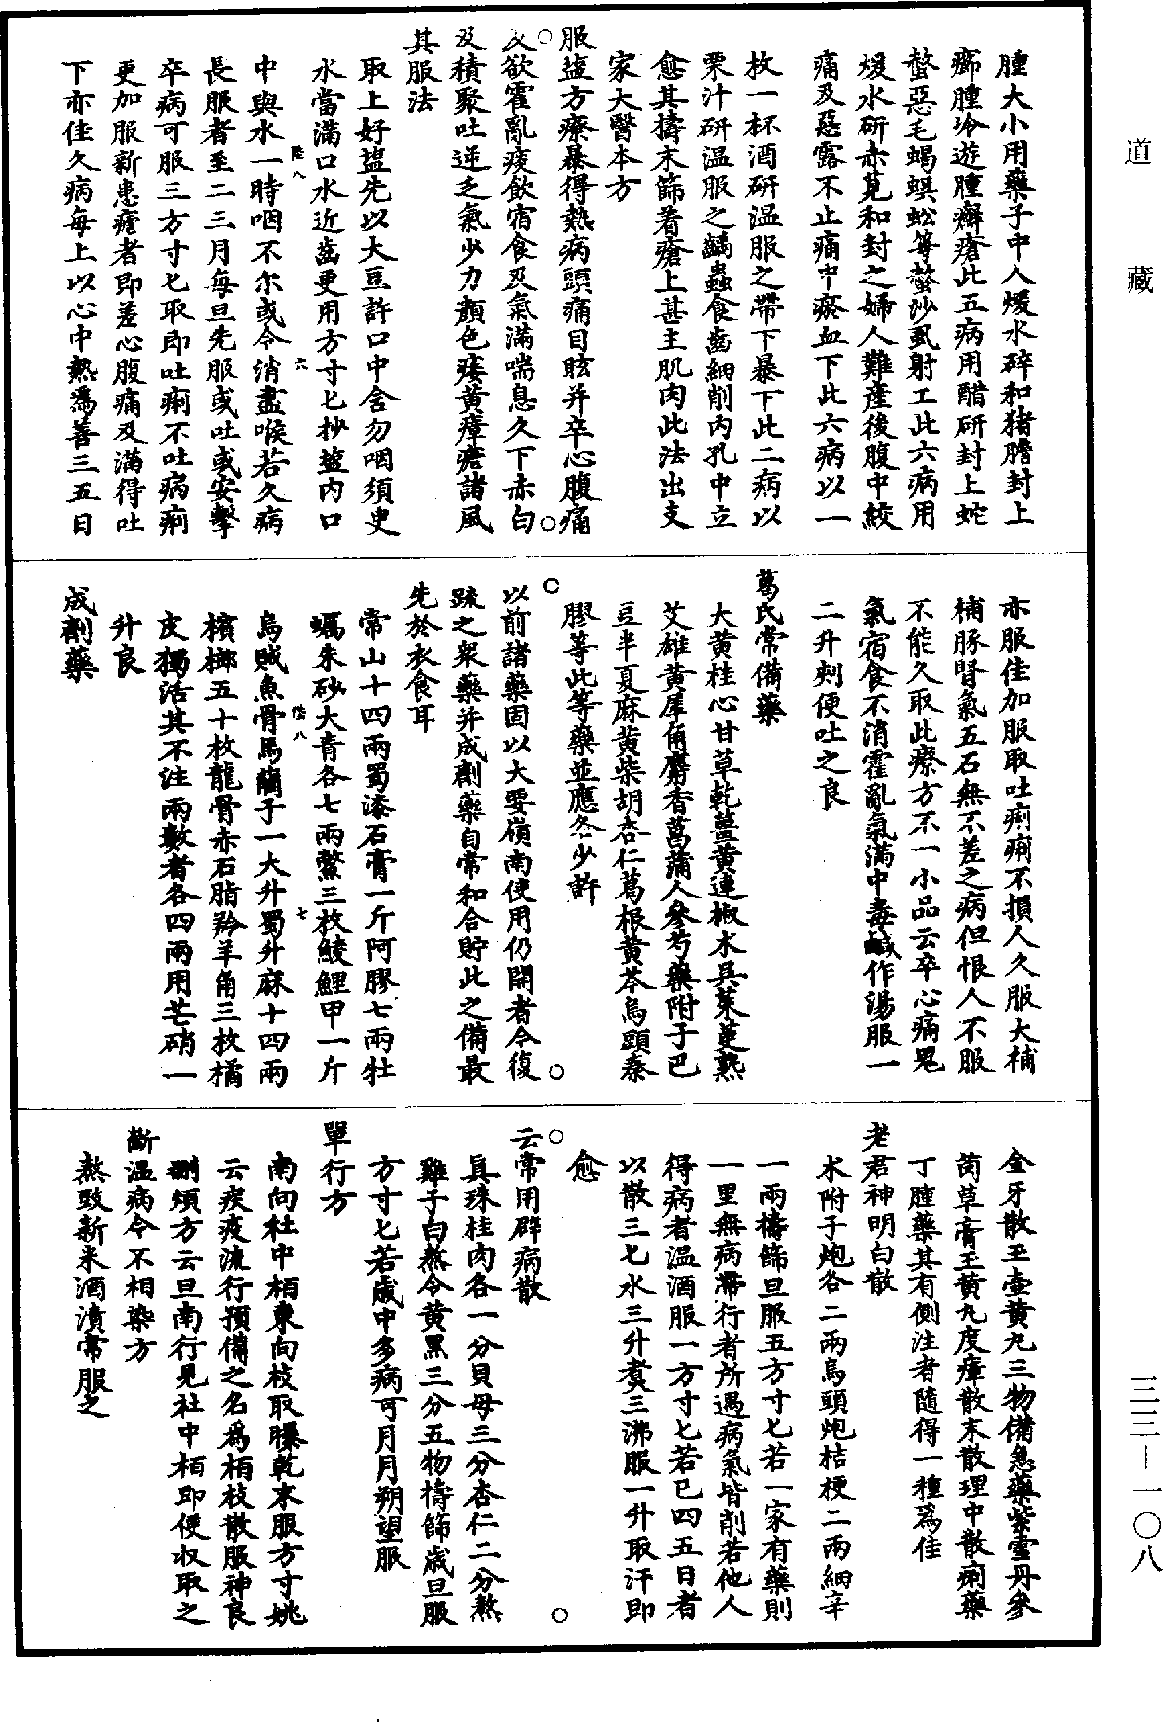 道藏
腫大小用藥子中人煖水碎和猪膽封上
癤腫冷遊腫癬瘡此五病用醋研封上蛇
螫惡毛蝎蜈蚣等螫沙虱射工此六病用
煖水研赤莧和封之婦人難產後腹中絞
痛及惡露不止痛中瘀血下此六病以一
枚一杯酒研温服之帶下暴下此二病以
栗汁研温服之齲蟲食齒細削内孔中立
愈其擣末篩着瘡上甚主肌肉此法出支
家大醫本方
服塩方療暴得熱病頭痛目眩并卒心腹痛
及欲霍亂痰飲宿食及氣滿喘息久下赤白
及積聚吐逆乏氣少力顏色痿黄瘴瘧諸風
其服法
取上好塩先以大豆許口中含勿咽須㬰
水當滿口水近齒更用方寸匕抄塩内口
中與水一時咽不尔或令消盡喉若久病
長服者至二三月每旦先服或吐或安擊
卒病可服三方寸匕取即吐痢不吐病痢
更加服新患瘧者即差心腹痛及滿得吐
下亦佳久病每上以心中熱爲善三五日
陸八
六
亦服佳加服取吐痢痢不損人久服大補
補豚腎氣五石無不差之病但恨人不服
不能久取此療方不一小品云卒心痛鬼
氣宿食不消霍亂氣滿中毒鹹作湯服一
二升刺便吐之良
葛氏常備藥
大黄桂心甘草乾薑黄連椒木呉茱萸熟
艾雄黄犀角麝香菖蒲人參芍藥附子巴
豆半夏麻黄柴胡杏仁葛根黄芩烏頭秦
膠等此等藥並應各少許
以前諸藥固以大要嶺南使用仍開者今復
疏之衆藥并成劑藥自常和合貯此之備最
先於衣食耳
常山十四兩蜀漆石膏一斤阿膠七兩牡
蠣朱砂大青各七兩鱉三枚鯪鯉甲一斤
烏賊魚骨馬藺子一大升蜀升麻十四兩
檳榔五十枚龍骨赤石脂羚羊角三枚橘
皮獨活其不注兩數者各四兩用芒硝一
升良
成劑藥
陸八
七
金牙散玉壺黄丸三物備急藥紫雪丹參
茵草膏玉黄丸度瘴散末散理中散痢藥
丁腫藥其有側注者隨得一種爲佳
老君神明白散
术附子炮各二兩烏頭炮桔梗二兩細辛
一兩擣篩旦服五方寸匕若一家有藥則
一里無病帶行者所遇病氣皆削若他人
得病者温酒服一方寸匕若已四五日者
以散三匕水三升煮三沸服一升取汗即
愈
云常用辟病散
真珠桂肉各一分貝母三分杏仁二分熬
雞子白熬令黄黑三分五物擣篩歲旦服
方寸匕若歲中多病可月月朔望服
單行方
南向社中柏東向枝取曝乾末服方寸姚
云疾疫流行預備之名爲柏枝散服神良
删煩方云旦南行見社中柏即便收取之
斷温病令不相染方
熬豉新米酒漬常服之
三三—一〇八